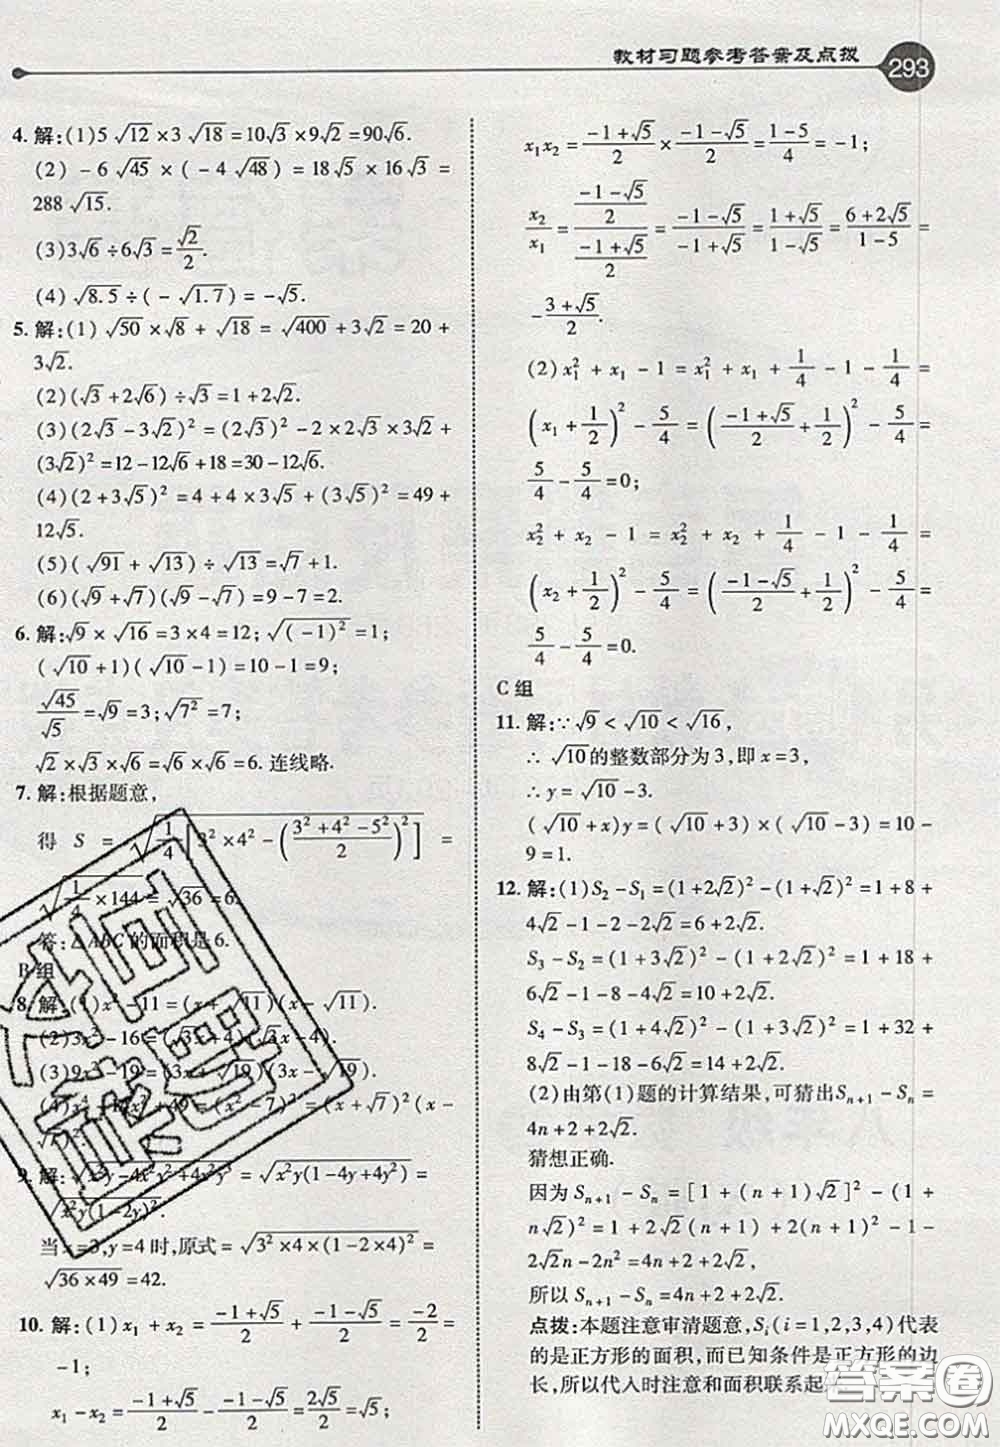 教材习题参考答案及点拨 293
4. 解:(1)5√12×3√18=10√3×9√2=90√6.
(2)-6√45×(-4√48)=18√5×16√3=
288√15.
(3)3√6÷6√3=√2/2.
(4)√8.5÷(-√1.7)=-√5.
5. 解:(1)√50×√8+√18=√400+3√2=20+
3√2.
(2)(√3+2√6)÷√3=1+2√2.
(3)(2√3-3√2)²=(2√3)²-2×2√3×3√2+
(3√2)²=12-12√6+18=30-12√6.
(4)(2+3√5)²=4+4×3√5+(3√5)²=49+
12√5.
(5)(√91+√13)÷√13=√7+1.
(6)(√9+√7)(√9-√7)=9-7=2.
6. 解:√9×√16=3×4=12;√(-1)²=1;
(√10+1)(√10-1)=10-1=9;
√45/√5=√9=3;√7²=7;
√2×√3=√6=√6. 连线略.
7. 解:根据题意,
得 S=√(1/4[3²×4²-((3²+4²-5²)/2)²])=
√(1/4×144)=√36=6.
答:△ABC的面积是6.
B组
8. 解:(1)x²-11=(x+√11)(x-√11).
(2)3x²-16=(√3x+4)(√3x-4).
(3)9x²-19=(3x+√19)(3x-√19).
(4)x⁴-14x²+49=(x²-7)²=(x+√7)²(x-
9. 解:√(x²y-4x²y²+4x²y³)=√(x²y(1-4y+4y²))=
√(x²y(1-2y)²).
当x=3,y=4时,原式=√(3²×4×(1-2×4)²)=
√(36×49)=42.
10. 解:(1)x₁+x₂=(-1+√5)/2+(-1-√5)/2=-2/2=
-1;
x₁-x₂=(-1+√5)/2-(-1-√5)/2=2√5/2=√5;
x₁x₂=(-1+√5)/2×(-1-√5)/2=(1-5)/4=-1;
x₂/x₁=((-1-√5)/2)/((-1+√5)/2)=(-1-√5)/(-1+√5)=(1+√5)/(1-√5)=(6+2√5)/(1-5)=
-(3+√5)/2.
(2)x₁²+x₁-1=x₁²+x₁+1/4-1-1/4=
(x₁+1/2)²-5/4=((-1+√5)/2+1/2)²-5/4=
5/4-5/4=0;
x₂²+x₂-1=x₂²+x₂+1/4-1-1/4=
(x₂+1/2)²-5/4=((-1-√5)/2+1/2)²-5/4=
5/4-5/4=0.
C组
11. 解:∵√9<√10<√16,
∴√10的整数部分为3,即x=3,
∴y=√10-3.
(√10+x)y=(√10+3)×(√10-3)=10-
9=1.
12. 解:(1)S₂-S₁=(1+2√2)²-(1+√2)²=1+8+
4√2-1-2-2√2=6+2√2.
S₃-S₂=(1+3√2)²-(1+2√2)²=1+18+
6√2-1-8-4√2=10+2√2.
S₄-S₃=(1+4√2)²-(1+3√2)²=1+32+
8√2-1-18-6√2=14+2√2.
(2)由第(1)题的计算结果,可猜出Sₙ₊₁-Sₙ
=4n+2+2√2.
猜想正确.
因为Sₙ₊₁-Sₙ=[1+(n+1)√2]²-(1+
n√2)²=1+2√2(n+1)+2(n+1)²-1-
2√2n-2n²=4n+2+2√2,
所以Sₙ₊₁-Sₙ=4n+2+2√2.
点拨:本题注意审清题意,Sᵢ(i=1,2,3,4)代表
的是正方形的面积,而已知条件是正方形的边
长,所以代入时注意和面积联系起
答案圈
MXQE.COM